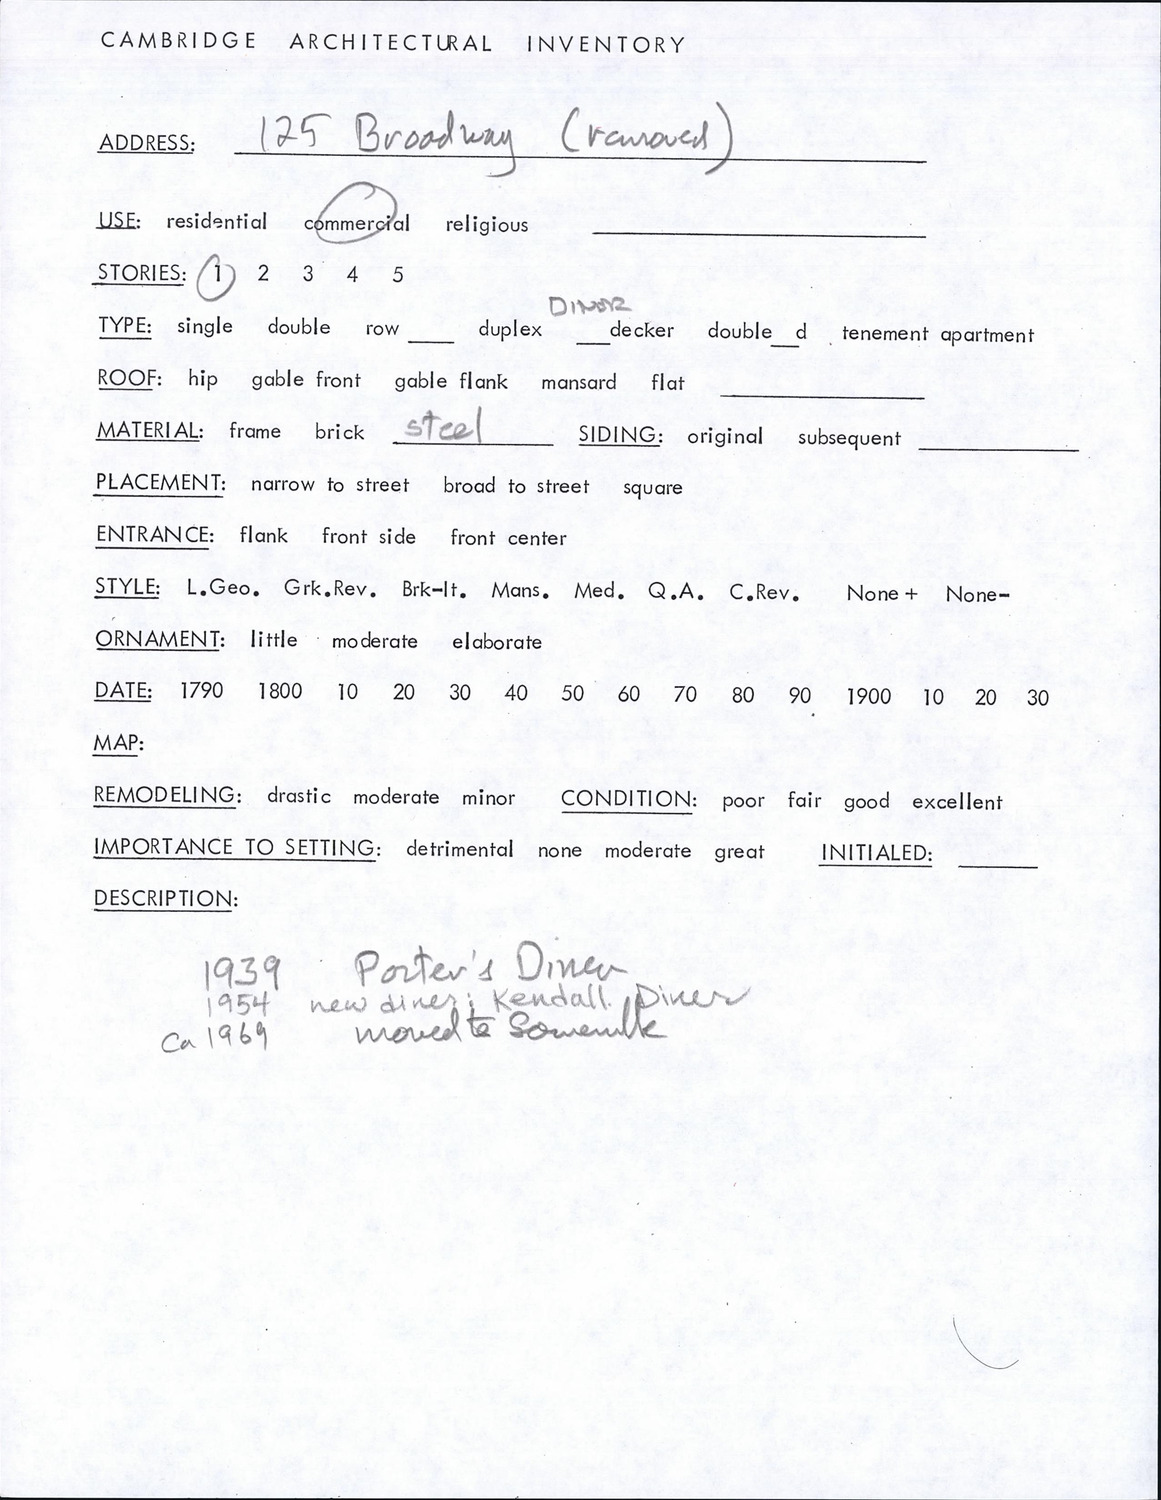 CAMBRIDGE ARCHITECTURAL INVENTORY
ADDRESS: 125 Broadway (removed)
USE: residential commercial religious
STORIES: 1 2 3 4 5
DINER
TYPE: single double row ___ duplex ___decker double__d tenement apartment
ROOF: hip gable front gable flank mansard flat
MATERIAL: frame brick steel SIDING: original subsequent
PLACEMENT: narrow to street broad to street square
ENTRANCE: flank front side front center
STYLE: L.Geo. Grk.Rev. Brk-It. Mans. Med. Q.A. C.Rev. None+ None-
ORNAMENT: little moderate elaborate
DATE: 1790 1800 10 20 30 40 50 60 70 80 90 1900 10 20 30
MAP:
REMODELING: drastic moderate minor CONDITION: poor fair good excellent
IMPORTANCE TO SETTING: detrimental none moderate great INITIALED:
DESCRIPTION:
1939 Porter's Diner
1954 new diner; Kendall Diner
Ca 1969 moved to Somerville